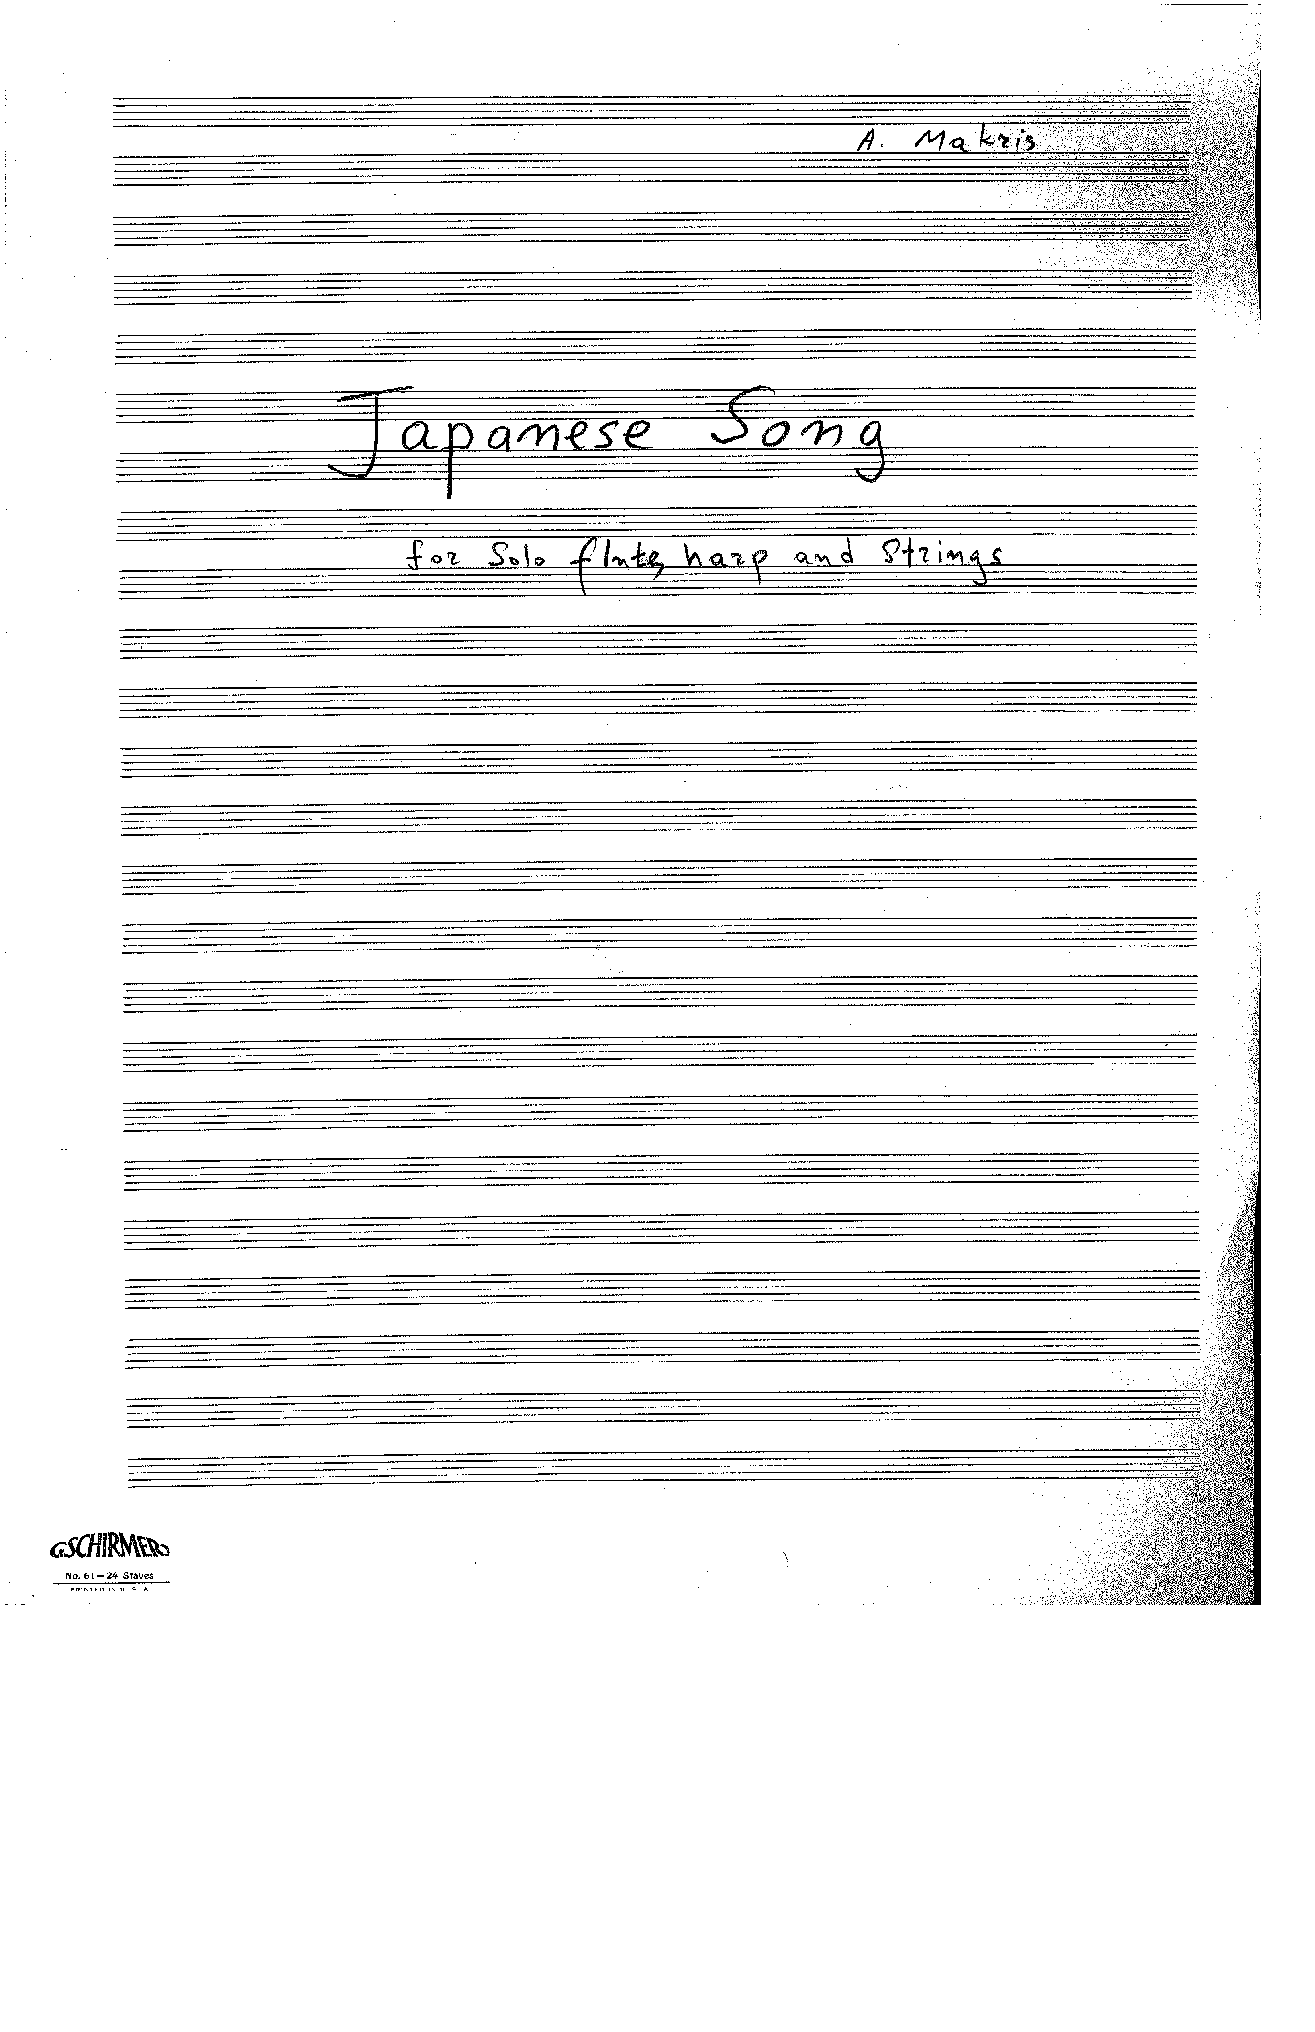 A. Makris
Japanese Song
for Solo flute, harp and Strings
G. SCHIRMER
No. 61—24 Staves
PRINTED IN U. S. A.